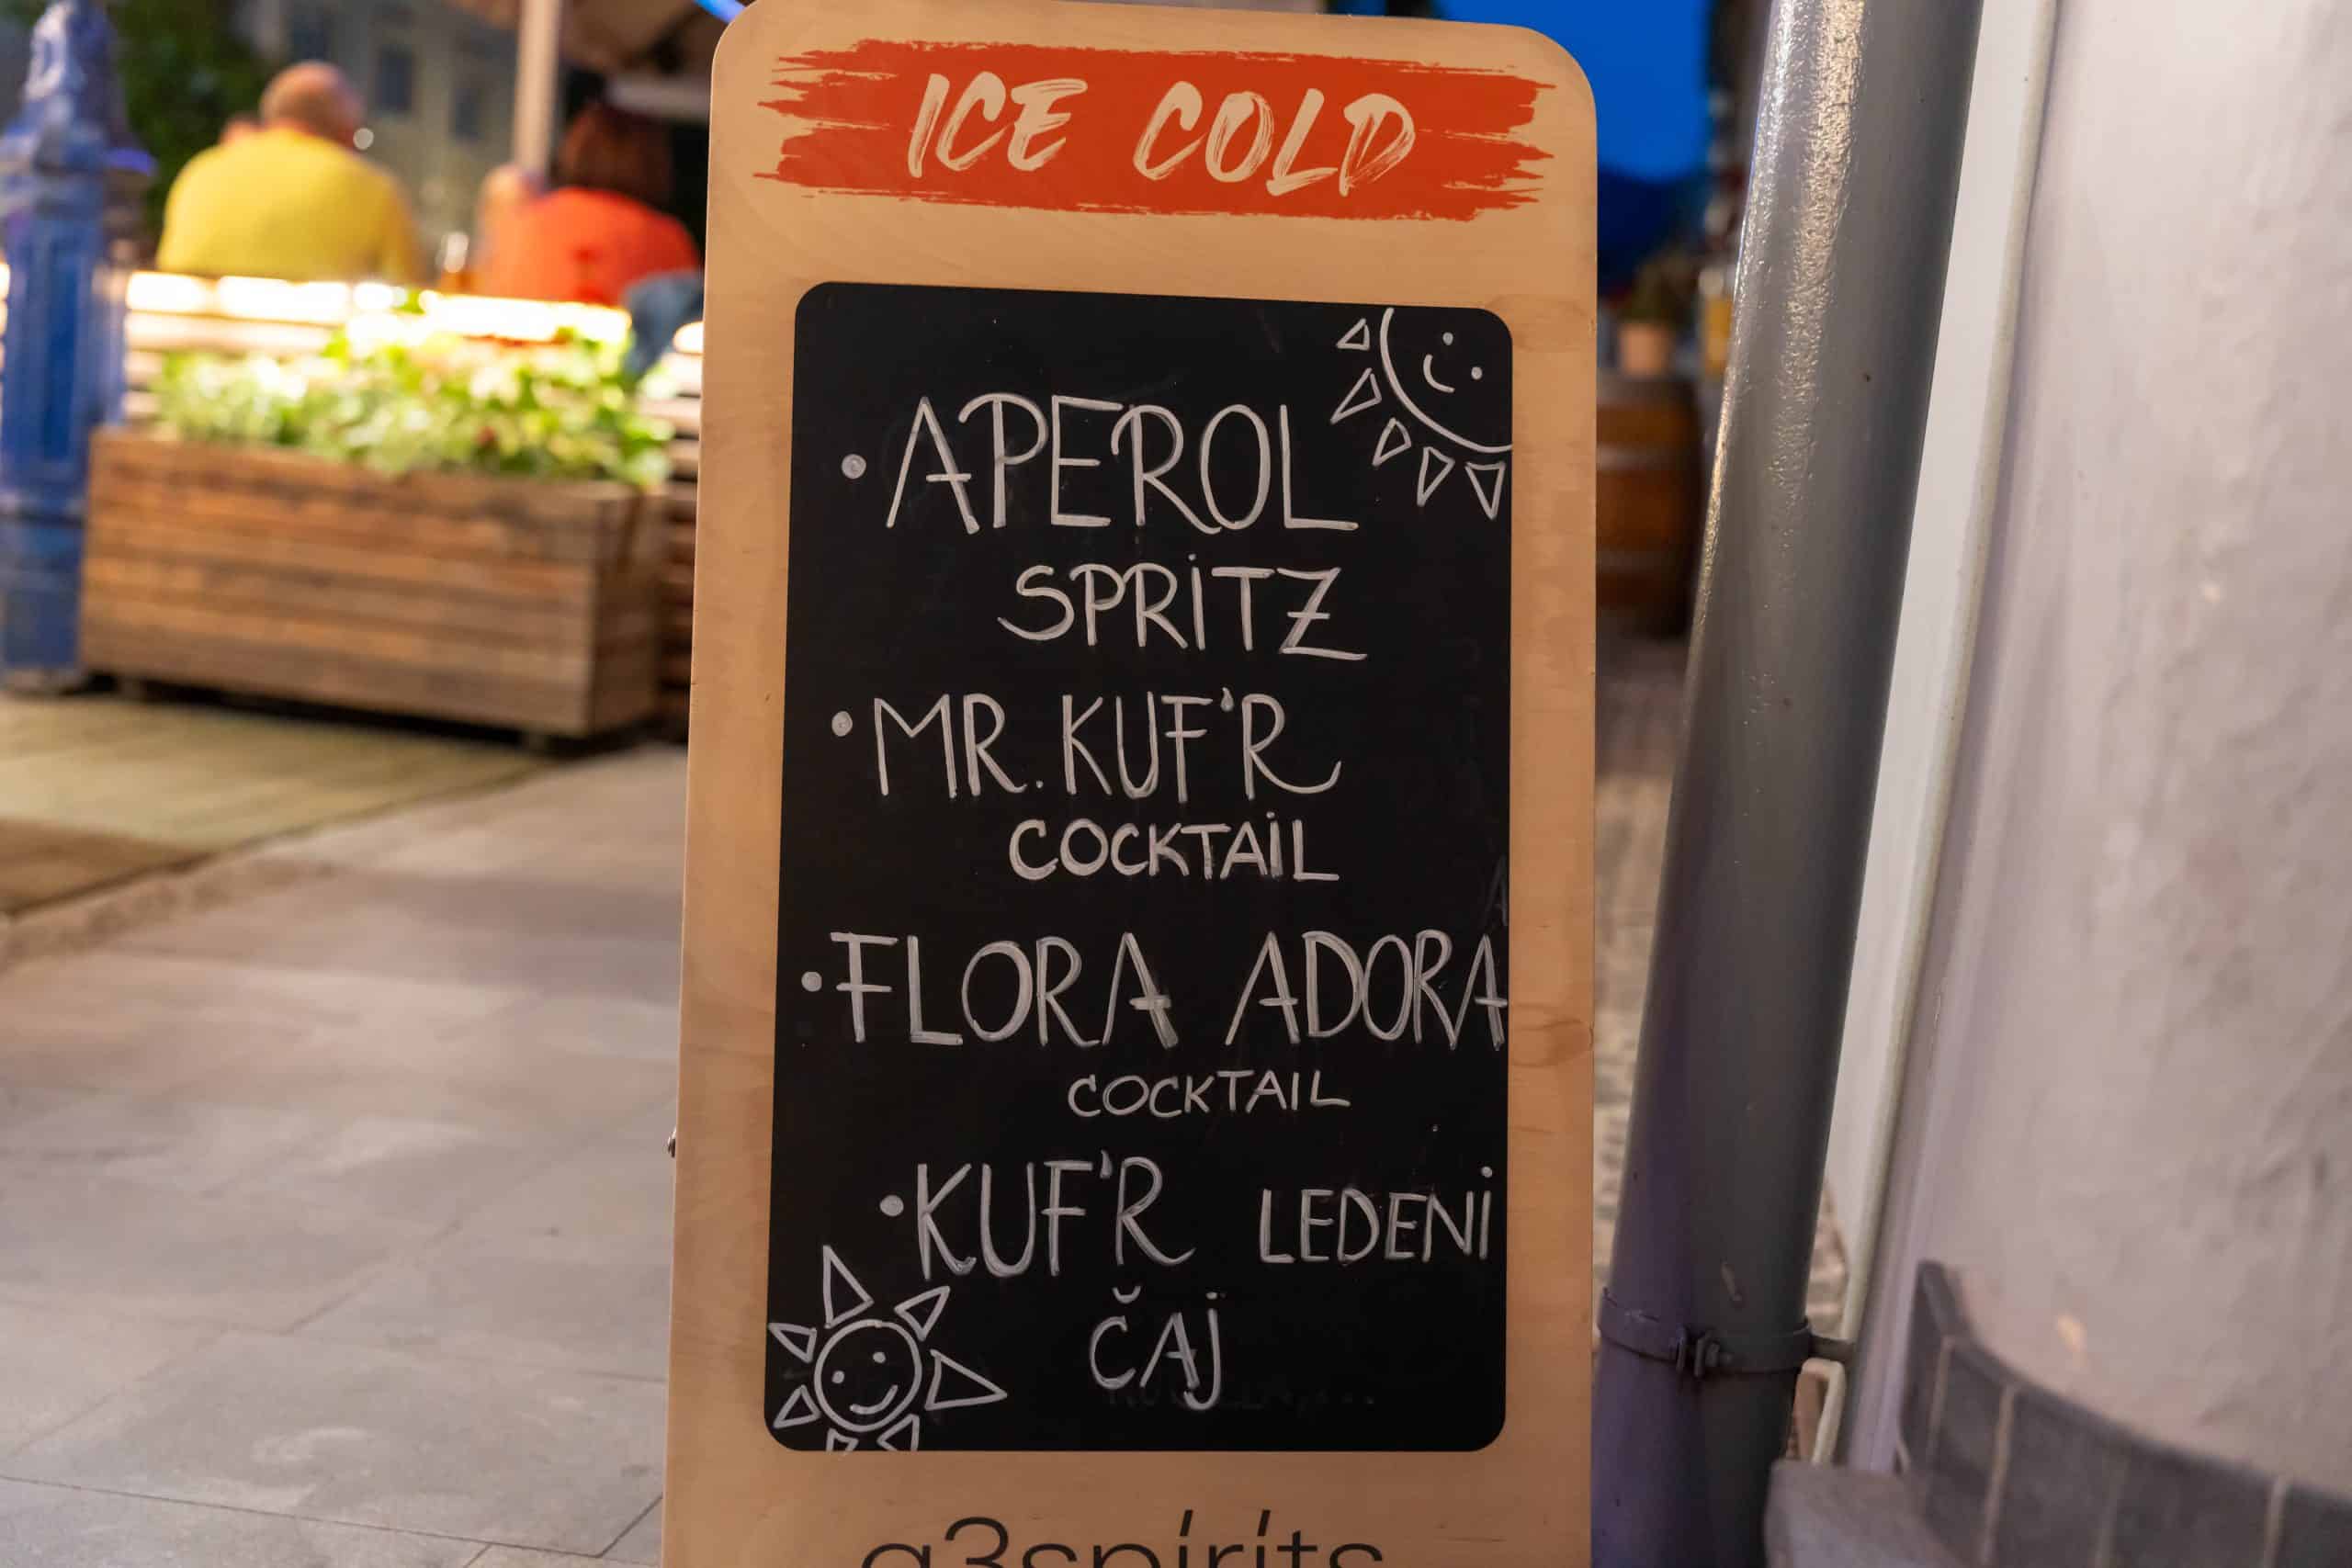 ICE COLD
• APEROL
SPRITZ
• MR. KUF'R
COCKTAIL
• FLORA ADORA
COCKTAIL
• KUF'R LEDENI
ČAJ